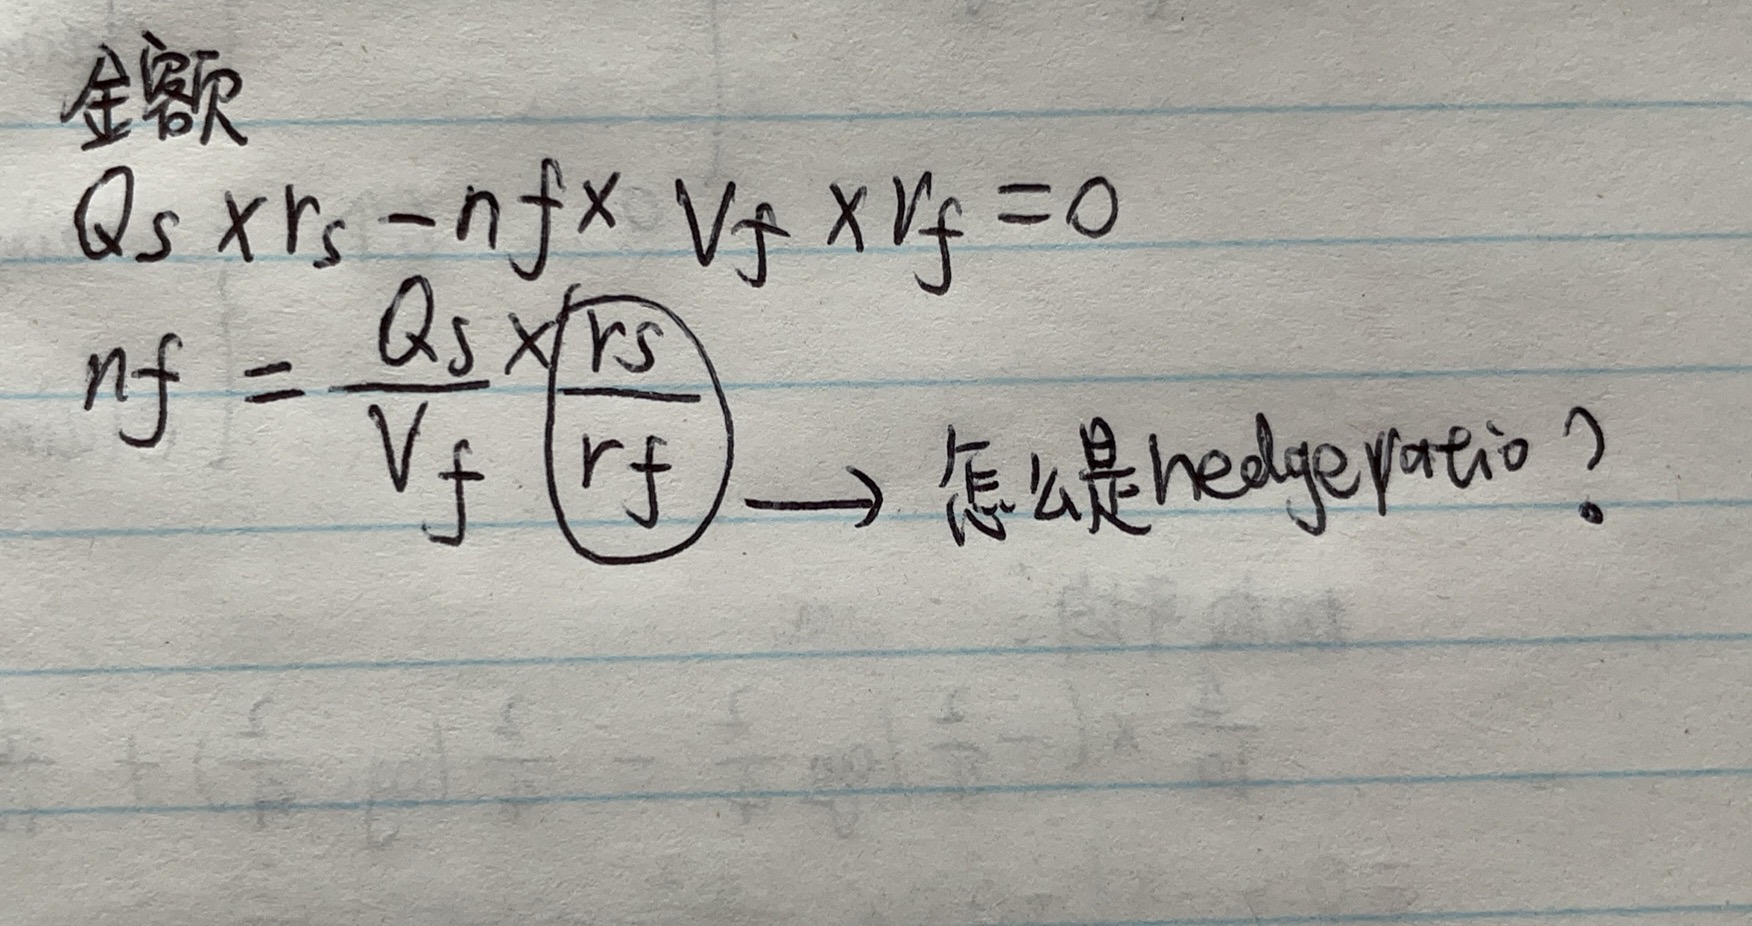 金额
Qs × rs - nf × Vf × rf = 0
nf = Qs/Vf × rs/rf → 怎么是hedge ratio?